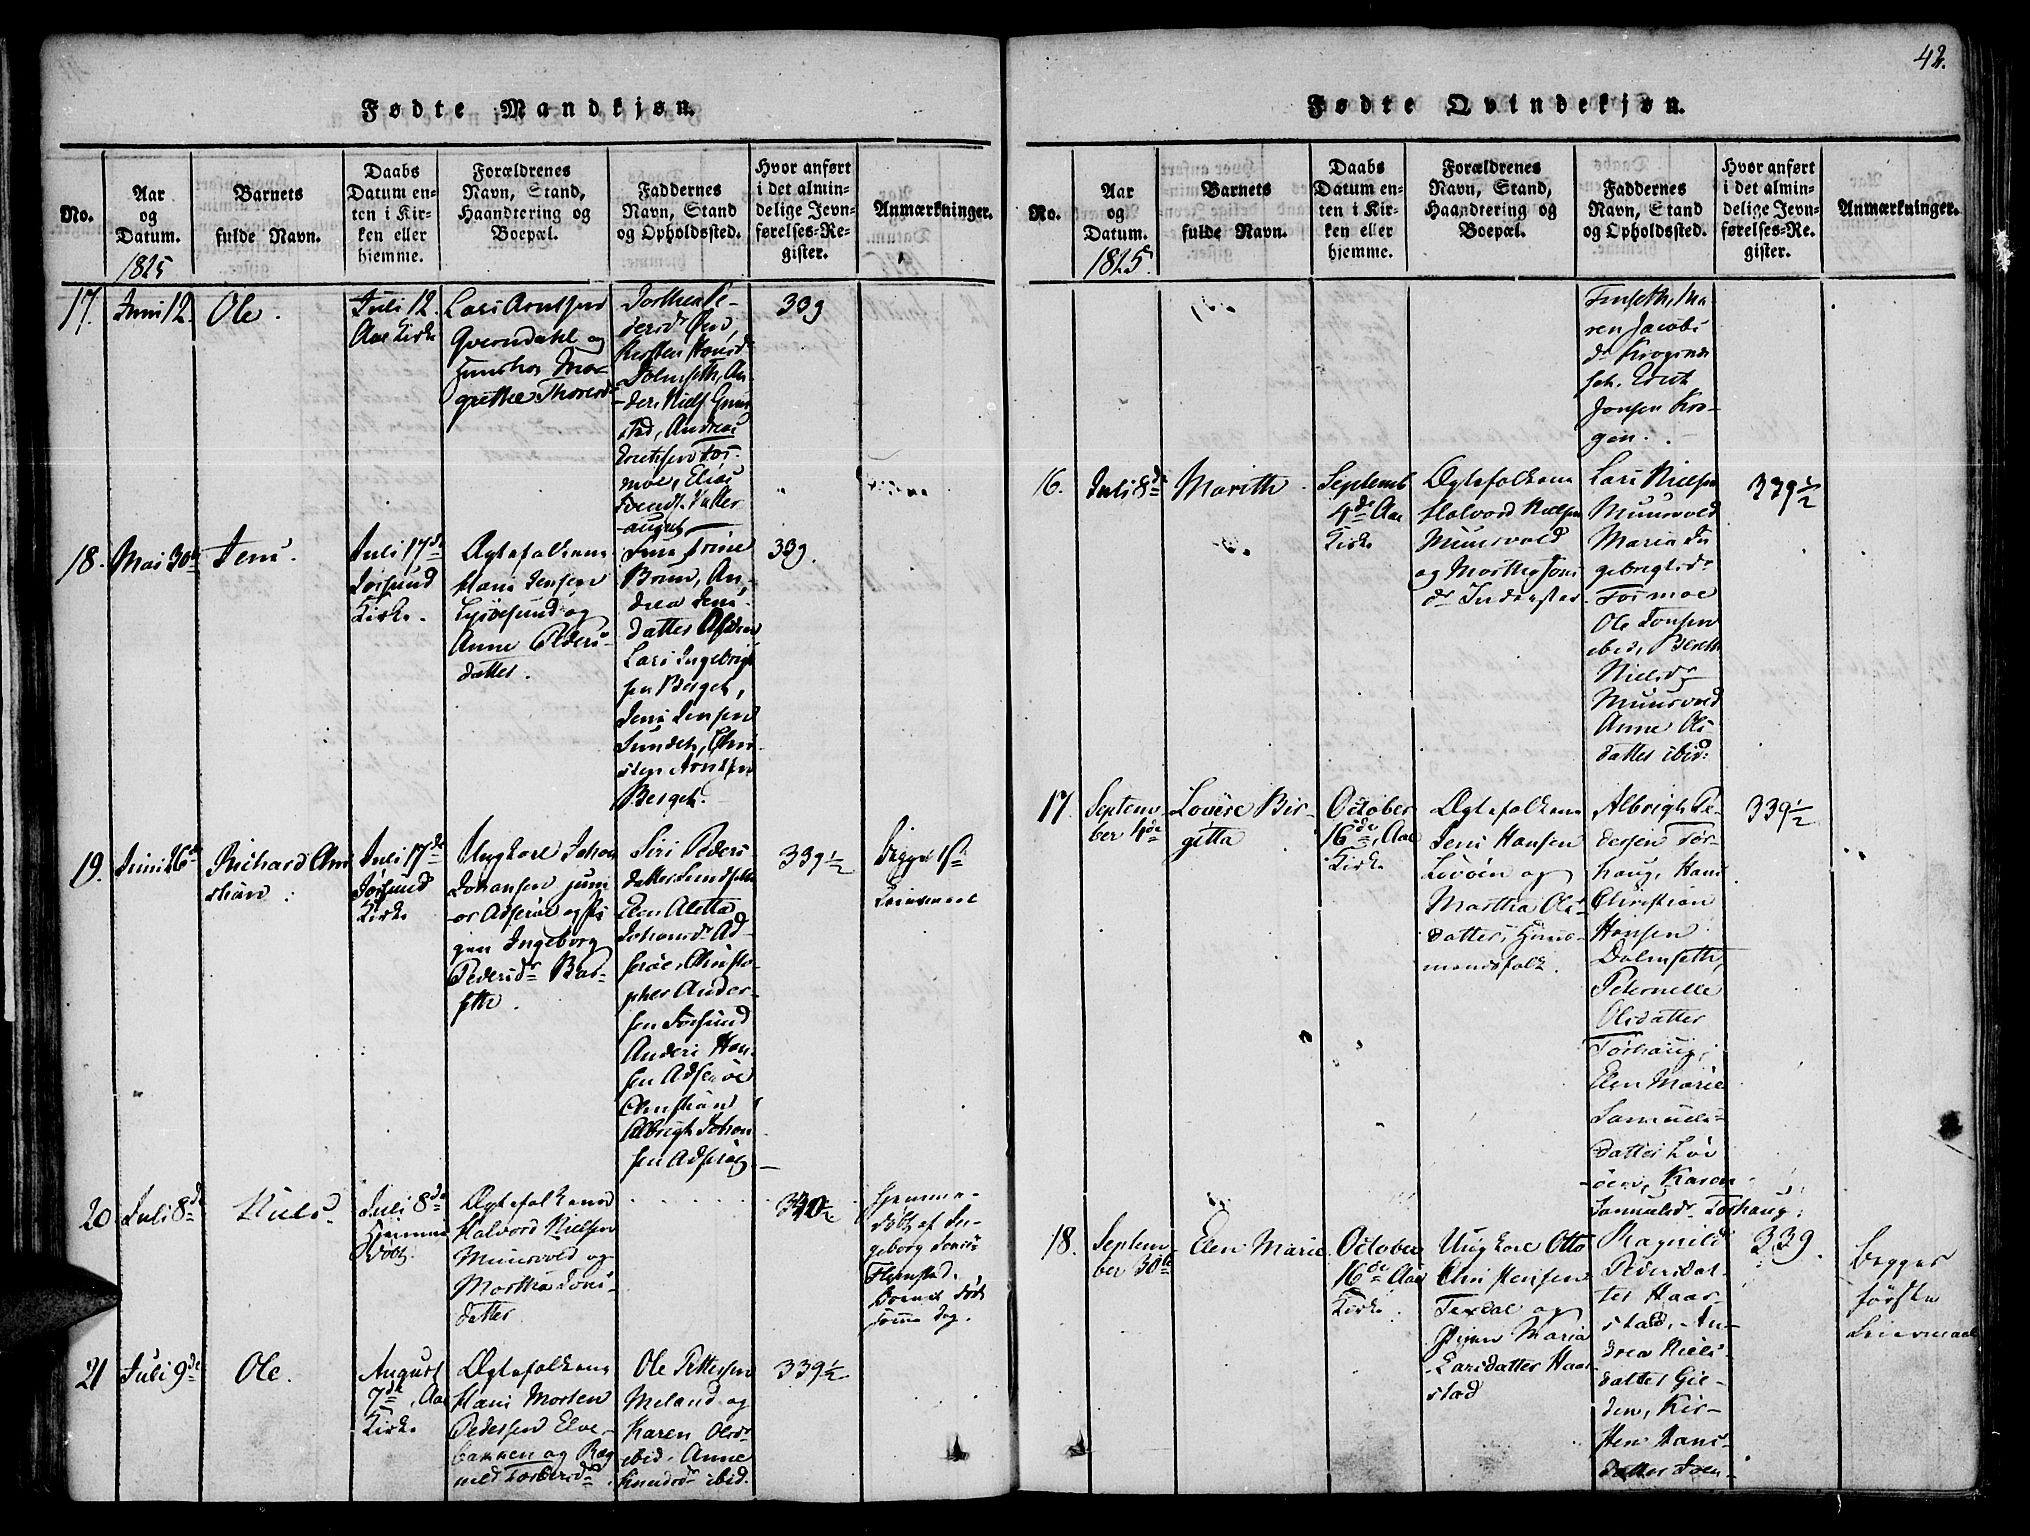 42.
Fødte Mandkjøn.
No.
Aar
og
Datum.
1825
Barnets
fulde Navn.
Daabs
Datum en-
ten i Kir-
ken eller
hjemme.
Forældrenes
Navn, Stand,
Haandtering og
Boepæl.
Faddernes
Navn, Stand
og Opholdssted.
Hvor anført
i det almin-
delige Jevn-
førelses-Re-
gister.
Anmærkninger.
17.
Juni 12.
Ole.
Juli 12.
Aae Kirke
Lars Arntsen
Qverndahl og
grethe Thoresdr
Dorthea Pe-
dersdr Øen,
Kirsten Hansdr
Dolmseth, An-
ders Niels Grim
stad, Andreas
Erichsen Tor-
moe, Elias
339
18.
Mai 30te
Jens.
Juli 17de
Jøssund
Kirke.
Ægtefolkene
Hans Jensen
Lysøesund og
Anne Peders-
datter.
Jens Trine
Brun, An-
drea Jens-
datter
Lars Ingebrigt
sen Berget,
Jens Jensen
Sundet, Chri-
sten Arntsen
Berget.
339.
19.
Juni 26de
Richard Chri
stian.
Juli 17de
Jøssund
Kirke
Ungkarl Johan
Johansen juni
or Adserøe og Pi
gen Ingeborg
Pedersdr Bas-
sette.
Siri Peders
datter Sundseth
Elen Aletta
Johansdr Ad-
serøe, Christo-
pher Ander-
sen Jøssund
Anders Han-
sen Adserøe
Christian
Albrigt Johan
sen Adserøe
339½
Begges 1ste
Leiermaal
20
Juli 8de
Niels.
Juli 8de
Hjemme
døbt.
Ægtefolkene
Halvord Nielsen
Muursvold og
Martha Jons-
datter
340½
Hjemme-
døbt af In-
geborg Jens
Flenstad.
Barnet døde
samme Dag.
21
Juli 9de
Ole.
August
7de, Aae
Kirke
Ægtefolkene
Hans Morten
Pedersen Elve-
bakken og Rag
nild
Ole Pettersen
Meland og
Karen Olsdr
ibid. Anne
Knudsdr ibid.
339½
Fødte Qvindekjøn.
No.
Aar
og
Datum.
1825.
Barnets
fulde Navn.
Daabs
Datum en-
ten i Kir-
ken eller
hjemme.
Forældrenes
Navn, Stand,
Haandtering og
Boepæl.
Faddernes
Navn, Stand
og Opholdssted.
Hvor anført
i det almin-
delige Jevn-
førelses-Re-
gister.
Anmærkninger.
Finseth, Ma-
ren Jacobs
dr Krognes
seth, Erich
Jonsen Kro-
gen.
16.
Juli 8de
Marith
Septemb
4de Aae
Kirke
Ægtefolkene
Halvord Nielsen
Muursvold
og Marthe Jons
dr
Lars Nielsen
Muursvold
Maria In
gebrigtsdr
Tormoe
Ole Jonsen
ibid, Bereth
Nielsdr
Muursvold
Anne Ols
datter ibid:
339½
17.
Septem-
ber
Lovise Bir-
gitta
October
16de, Aae
Kirke
Ægtefolkene
Jens Hansen
Lovøen og
Martha Ols-
datter, Huus-
mandsfolk.
Albrigt Pe-
dersen Tør-
houg, Hans
Christian
Hansen
Dolmseth,
Peternelle
Olsdatter
Tørhoug,
Elen Marie
Samuels-
datter Lov
øen, Karen
Samuelsdr Tørhoug;
339½
18.
Septem-
ber 30te
Elen Marie
October
16de Aae
Kirke
Ungkarl Otto
Christensen
Texdal og
Pigen Maria
Larsdatter Haar
stad
Ragnild
Pedersdat-
ter Haar-
stad, An-
drea Niels
datter Gie-
den, Kir-
sten Hans-
datter
339.
Begges
første
Leiermaal